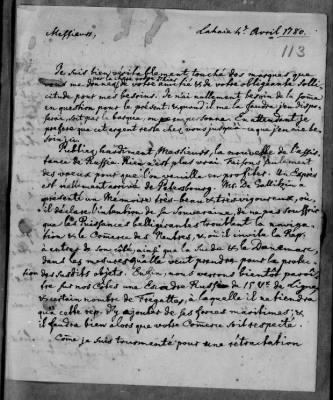 Messieurs, Lahaie 4e. Avril 1780.
113
Je suis bien véritablement touché des marques que
vous me donnez de votre amitié & de votre obligeante sollici-
tude pour mes besoins. Je n'ai nullement besoin de la somme
en question pour le présent; quand il me la faudra j'en dispo-
serai, soit par la barque, ou en personne. En attendant je
préfere que cet argent reste chez vous jusqu'à ce que j'en aie be-
soin.
Publiez hardiment, Messieurs, la nouvelle de l'assis-
tance de Russie. Rien n'est plus vrai. Faisons seulement
des voeux pour que l'on veuille en profiter. Un Exprès
est réellement arrivé de Petersbourg. Mr. De Gallitzin a
présenté un Mémoire très-beau & très vigoureux, où
il déclare l'intention de sa Souveraine de ne pas souffrir
que les Puissances belligérantes troublent la naviga-
tion & le Comerce des Neutres, & où il invite la Rep.
à entrer de son côté, ainsi que la Suede & le Danemarc,
dans les mesures qu'elle veut prendre pour la protec-
tion des susdits objets. Enfin, nous verrons bientôt paroî-
tre sur nos Côtes une Escadre Russe de 15 Vx. de Ligne
& certain nombre de Fregattes, à laquelle il ne tiendra
qu'à cette rep. d'y ajouter de ses forces maritimes; &
il faudra bien alors que votre Comerce soit respecté.
Come je suis tourmenté pour une rétractation